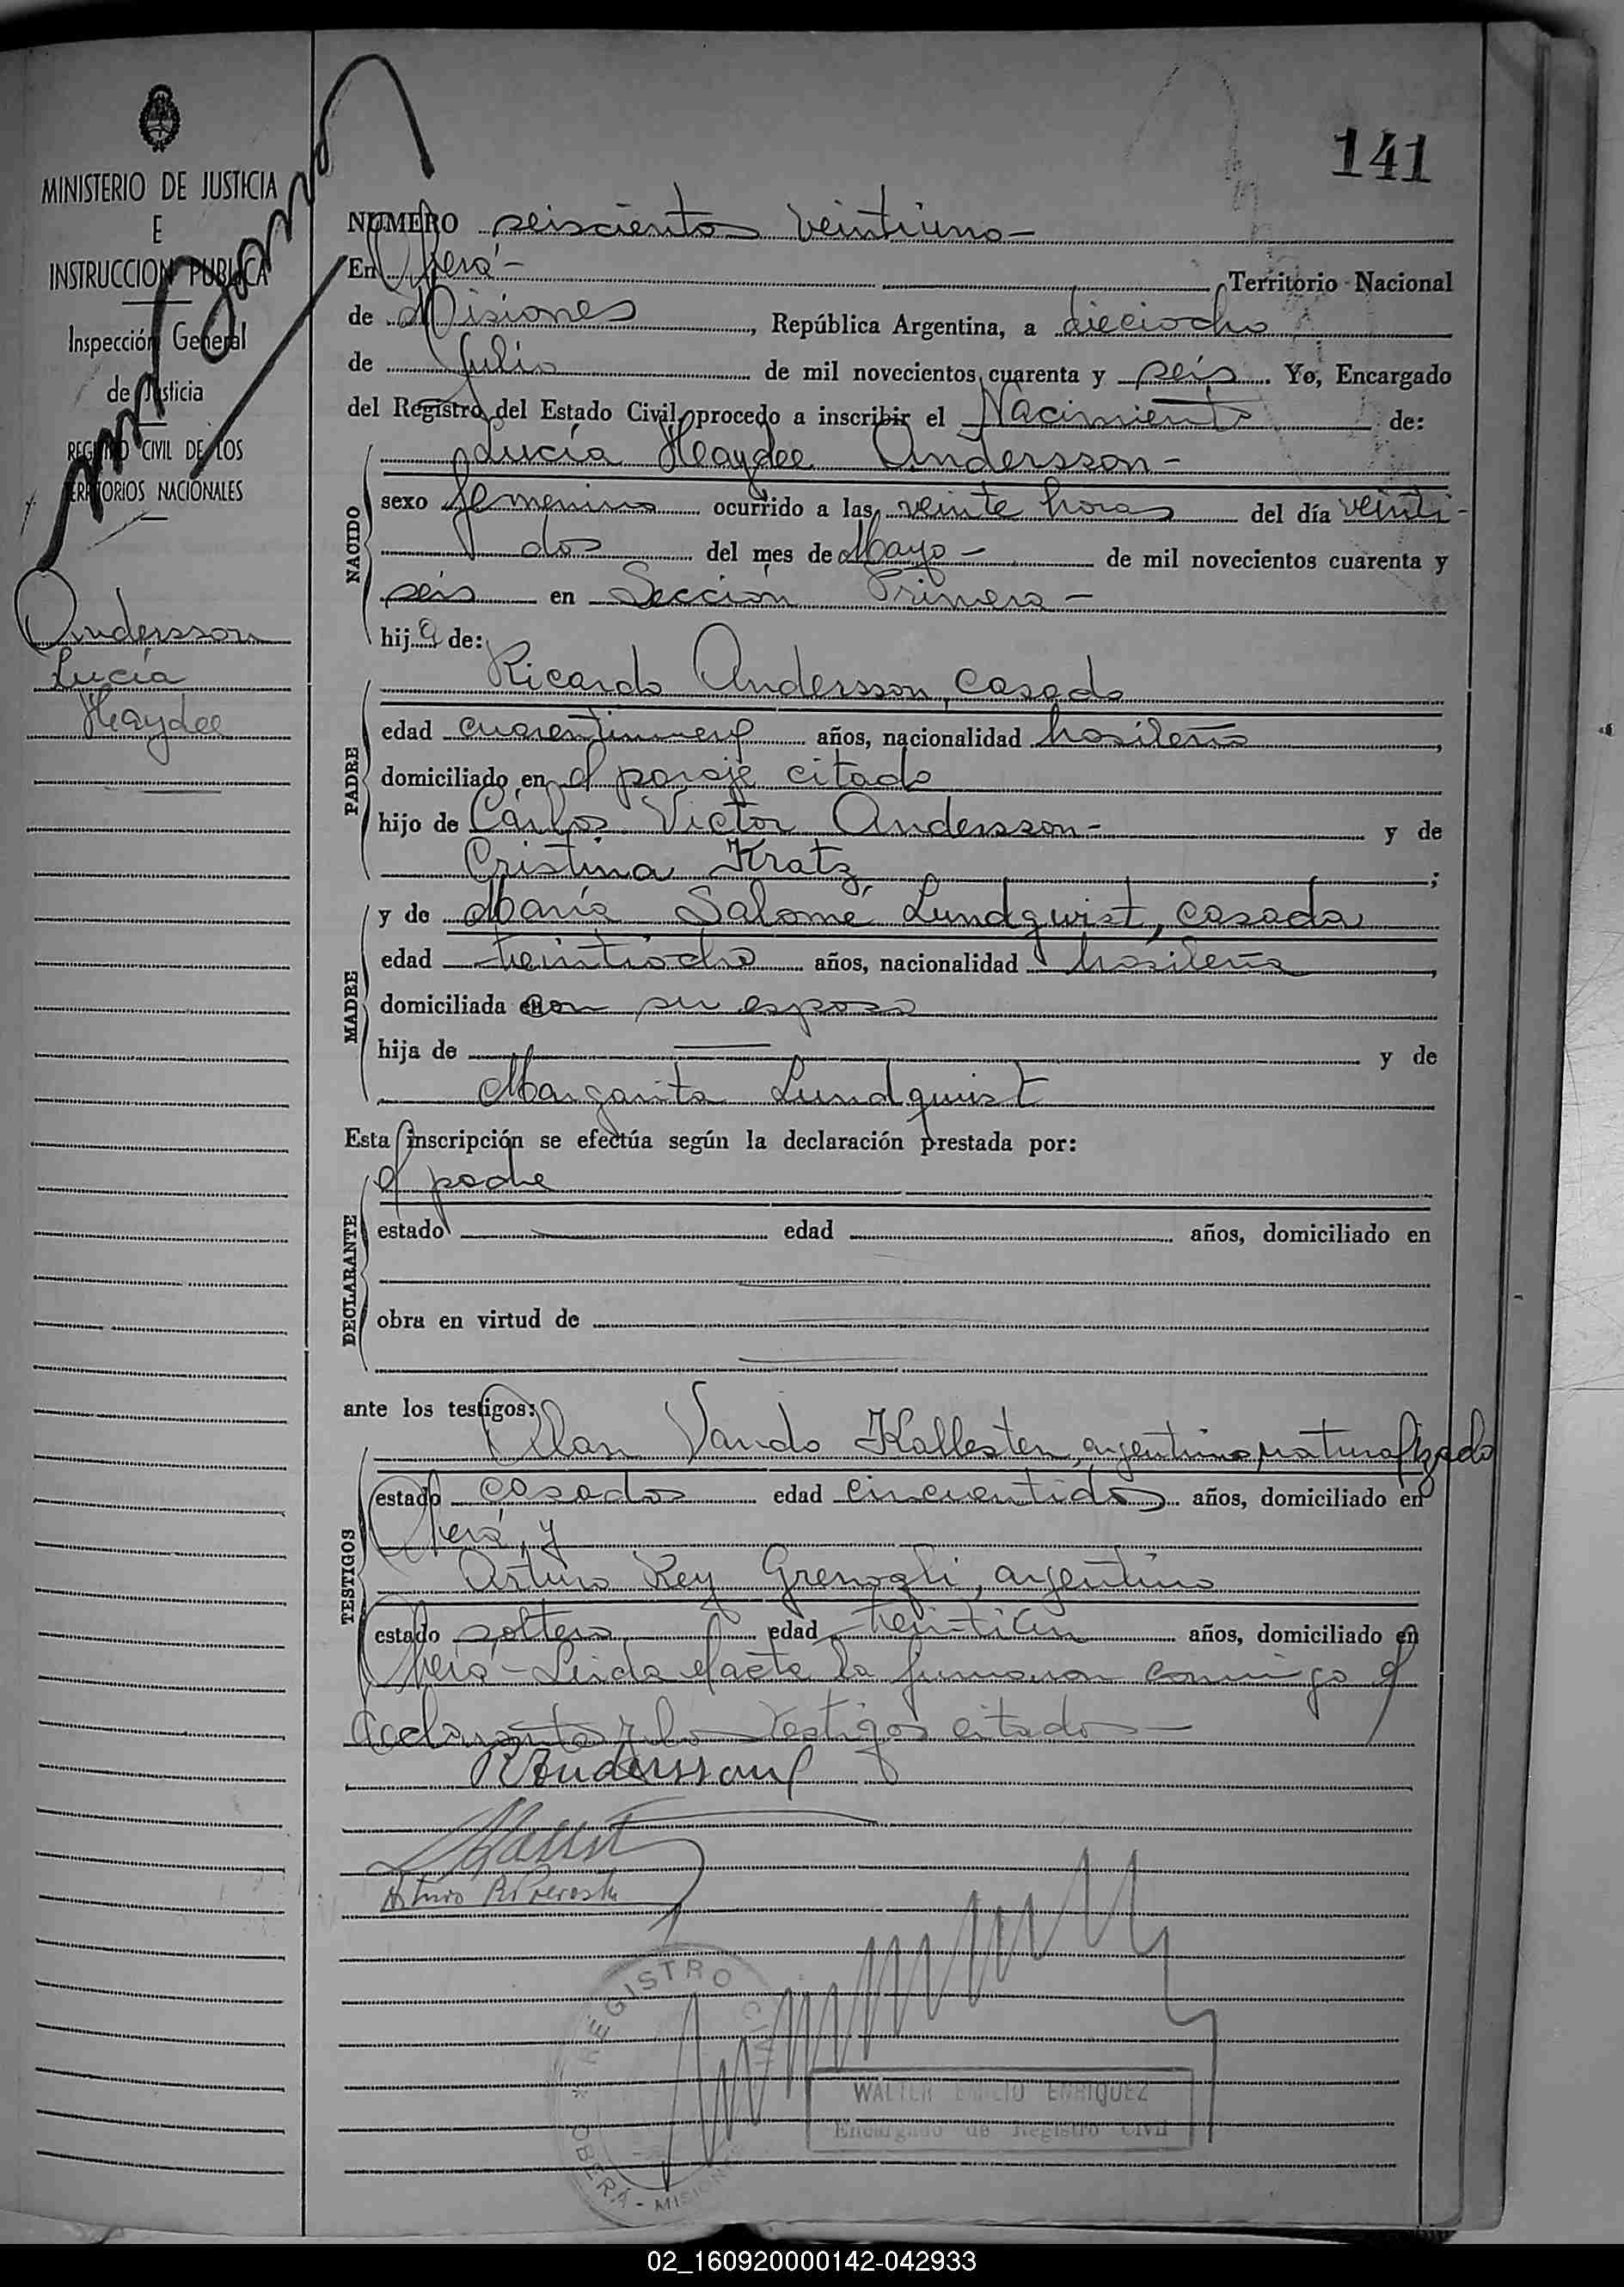 141
MINISTERIO DE JUSTICIA
E
INSTRUCCION PUBLICA
Inspección General
de Justicia
REGISTRO CIVIL DE LOS
TERRITORIOS NACIONALES
Andersson
Lucía
Haydee
NUMERO seiscientos veintiuno-
En Oberá- Territorio Nacional
de Misiones, República Argentina, a dieciocho
de Julio de mil novecientos cuarenta y seis. Yo, Encargado
del Registro del Estado Civil, procedo a inscribir el Nacimiento de:
Lucía Haydee Andersson-
NACIDO
sexo femenino ocurrido a las veinte horas del día veinti-
dos del mes de Mayo- de mil novecientos cuarenta y
seis en Sección Primera-
hija de:
Ricardo Andersson, casado
PADRE
edad años, nacionalidad brasileña,
domiciliado en el paraje citado
hijo de Cárlos Victor Andersson- y de
Cristina Kratz;
y de María Salomé Lundquist, casada
MADRE
edad treintiocho años, nacionalidad brasileña,
domiciliada en con su esposo
hija de y de
Margarita Lundquist
Esta inscripción se efectúa según la declaración prestada por:
el padre
DECLARANTE
estado edad años, domiciliado en
obra en virtud de
ante los testigos:
Allan Vando Kallsten, argentino naturalizado
TESTIGOS
estado casados edad cincuentidos años, domiciliado en
Oberá, y
Arturo Rey argentino
estado soltero edad años, domiciliado en
Oberá- Leída el acta la firmaron conmigo el
declarante y los testigos citados-
RAndersson
Arturo R
REGISTRO CIVIL
OBERÁ - MISIONES
WALTER EMILIO ENRIQUEZ
Encargado de Registro Civil
02_160920000142-042933